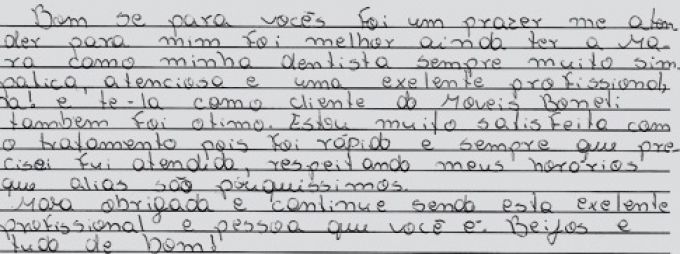 Bom se para vocês foi um prazer me aten
der para mim foi melhor ainda ter a Ma-
ra como minha dentista sempre muito sim
patica, atenciosa e uma exelente profissional,
e te-la como cliente do Moveis Boneti
tambem foi otimo. Estou muito satisfeita com
o tratamento pois foi rápido e sempre que pre-
cisei fui atendida, respeitando meus horários
que alias são pouquissimos.
Mara obrigada e continue sendo esta exelente
profissional e pessoa que você é. Beijos e
tudo de bom!